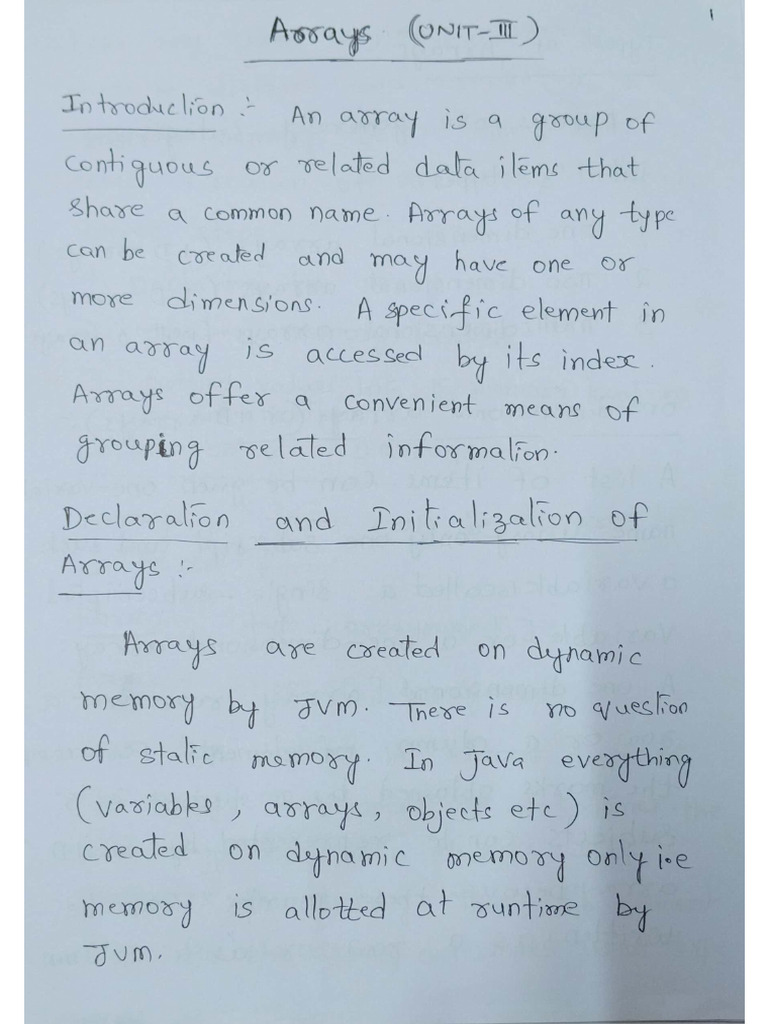 1
Arrays (UNIT-III)
Introduction :- An array is a group of
contiguous or related data items that
share a common name. Arrays of any type
can be created and may have one or
more dimensions. A specific element in
an array is accessed by its index.
Arrays offer a convenient means of
grouping related information.
Declaration and Initialization of
Arrays :-
Arrays are created on dynamic
memory by JVM. There is no question
of static memory. In Java everything
(variables, arrays, objects etc) is
created on dynamic memory only i.e
memory is allotted at runtime by
JVM.